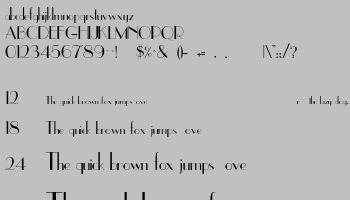 abcdefghijklmnopqrstuvwxyz
ABCDEFGHIJKLMNOPQR
0123456789 $%& () . , \ :;/?
12 The quick brown fox jumps ove r the lazy dog.
18 The quick brown fox jumps ove
24 The quick brown fox jumps ove